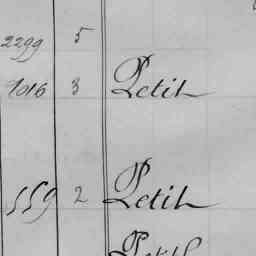 2299 5
1016 3 Petit
559 2 Petit
Petit